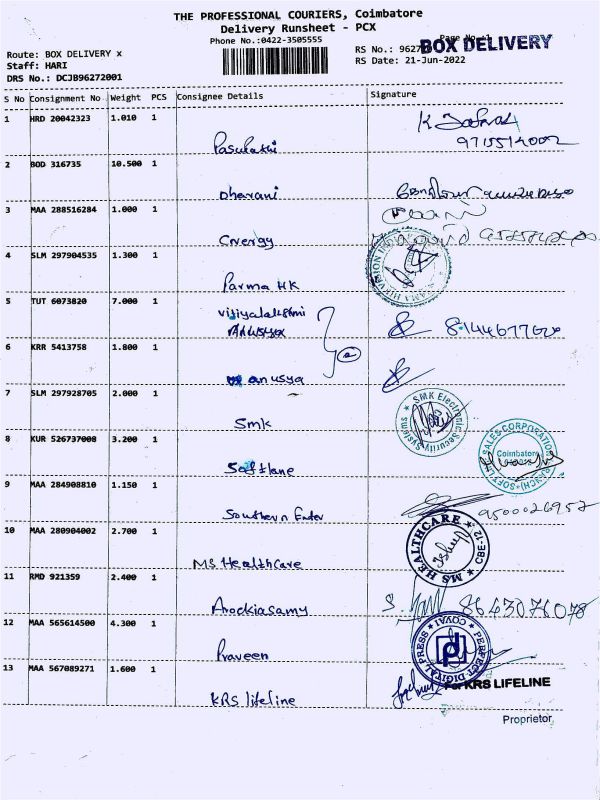 THE PROFESSIONAL COURIERS, Coimbatore
Delivery Runsheet - PCX
Phone No:0422-3505555
Page No 1
Route: BOX DELIVERY x
RS No.: 9627
BOX DELIVERY
Staff: HARI
RS Date: 21-Jun-2022
DRS No.: DCJB96272001
S No Consignment No Weight PCS Consignee Details Signature
1 HRD 20042323 1.010 1
2 BOD 316735 10.500 1
Dharani
3 MAA 288516284 1.000 1
4 SLM 297904535 1.300 1
Parma HK
5 TUT 6073820 7.000 1
6 KRR 5413758 1.800 1
anusya
7 SLM 297928705 2.000 1
SMK Electronic Security Systems
Smk
8 KUR 526737008 3.200 1
Coimbatore
Softlane
9 MAA 284908810 1.150 1
9500026957
10 MAA 280904002 2.700 1
MS HEALTHCARE CBE-12
MS Healthcare
11 RMD 921359 2.400 1
Arockiasamy
8643076078
12 MAA 565614500 4.300 1
PERFECT DIGITAL PRESS COVAI
Praveen
13 MAA 567089271 1.600 1
For KRS LIFELINE
KRS lifeline
Proprietor